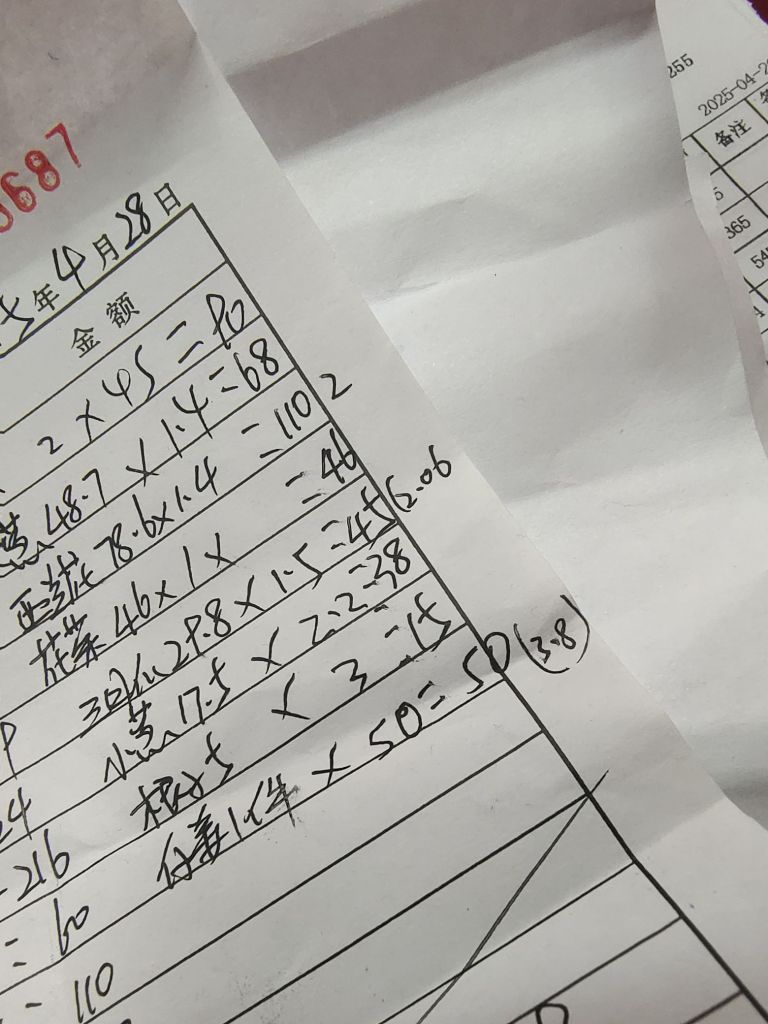 0687
5年4月28日
金额
2×45=90
葱48.7×1.4=68
西兰花78.6×1.4=110 2
花菜46×1×=46
29.8×1.5=45(2.06
小葱17.5×2.2=38
5×3=15
仔姜1件×50=50(3.8)
24
216
=60
110
255
2025-04-2
备注
5
365
54